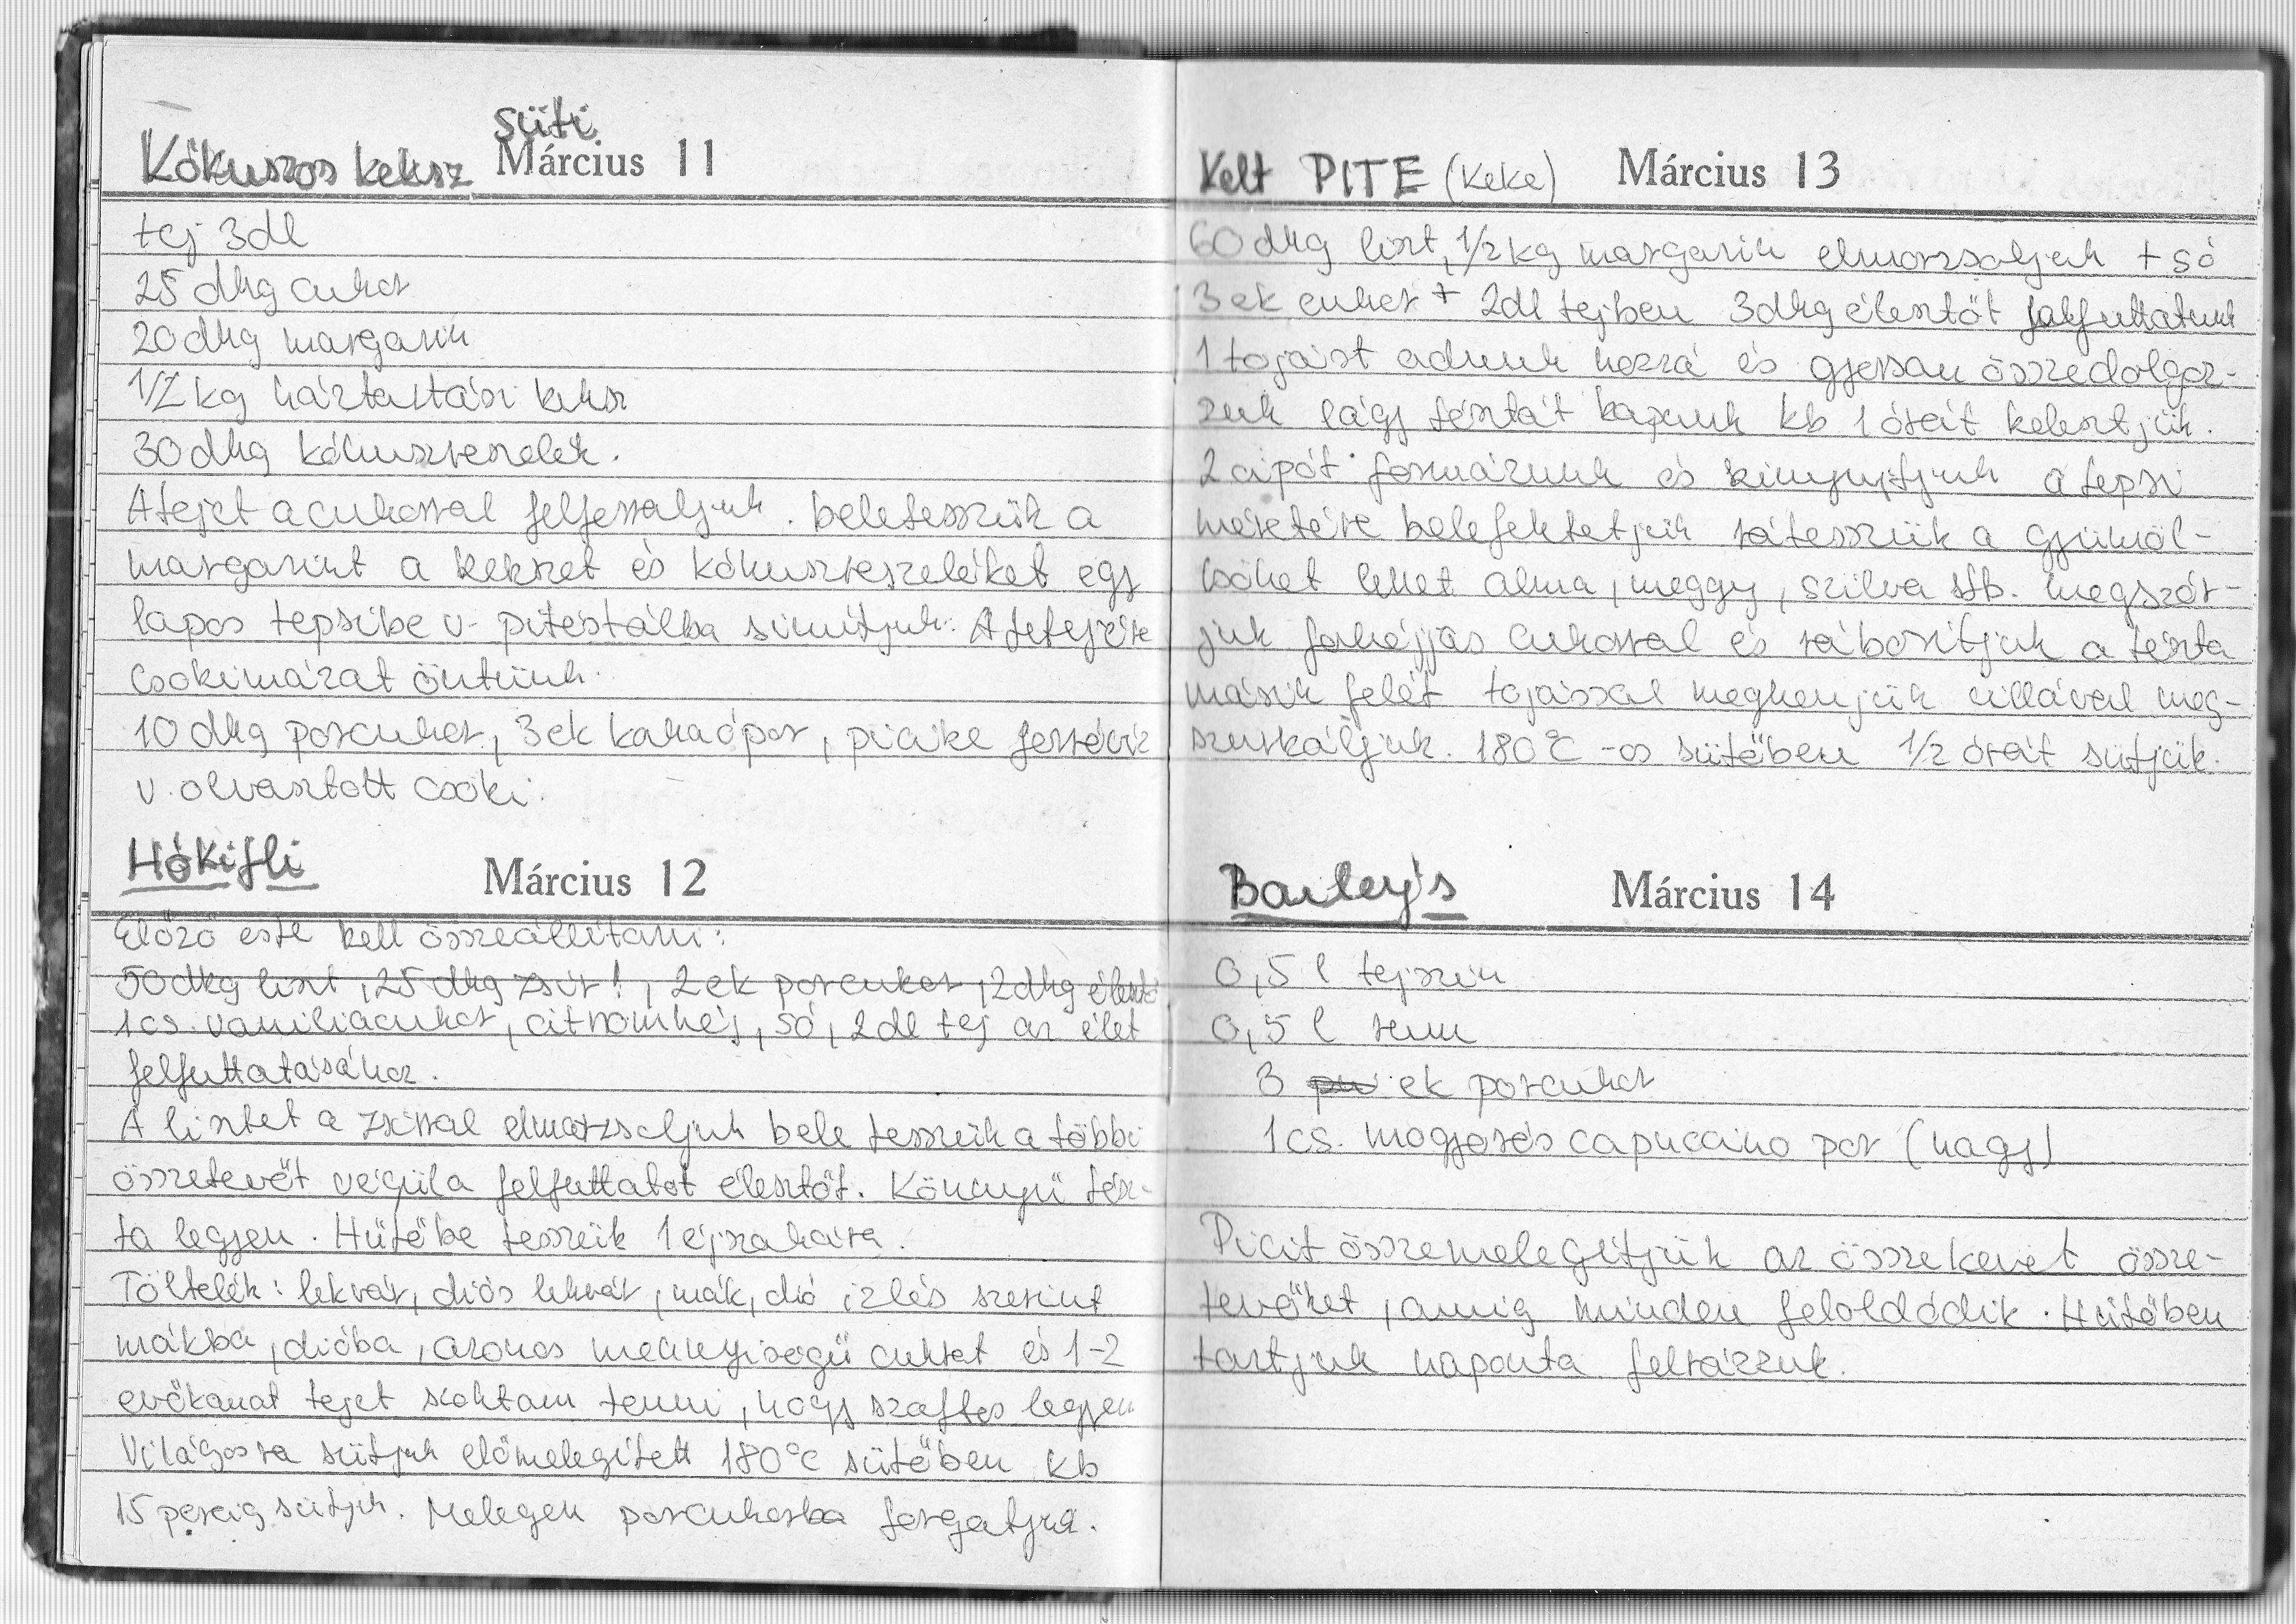 süti
Kókuszos keksz Március 11
tej 3dl
25 dkg cukor
20 dkg margarin
1/2 kg háztartási keksz
30 dkg kókuszreszelék.
A tejet a cukorral felforraljuk. beletesszük a
margarint a kekszet és kókuszreszeléket egy
lapos tepsibe v. pitéstálba simítjuk. A tetejére
csokimázat öntünk.
10 dkg porcukor, 3 ek kakaópor, picike forróvíz
v. olvasztott csoki.
Hókifli Március 12
Előző este kell összeállítani:
50 dkg liszt, 25 dkg zsír!, 2 ek porcukor, 2 dkg élesztő
1 cs. vaniliacukor, citromhéj, só, 2dl tej az élet
felfuttatásához.
A lisztet a zsírral elmorzsoljuk bele tesszük a többi
összetevőt végül a felfuttatot élesztőt. Könnyű tész-
ta legyen. Hűtőbe tesszük 1 éjszakára.
Töltelék: lekvár, diós lekvár, mák, dió ízlés szerint
mákba, dióba, azonos mennyiségű cukrot és 1-2
evőkanat tejet szoktam tenni, hogy szaftos legyen
Világosra sütjük előmelegített 180°C sütőben kb
15 percig sütjük. Melegen porcukorba forgatjuk.
Kelt PITE (Keke) Március 13
60 dkg liszt, 1/2 kg margarin elmorzsoljuk + só
3 ek cukor + 2dl tejben 3dkg élesztőt felfuttatunk
1 tojást adunk hozzá és gyorsan összedolgoz-
zuk lágy tésztát kapunk kb 1 órát kelesztjük.
2 cipót formázunk és kinyujtjuk a tepsi
méretére belefektetjük rátesszük a gyümöl-
csöket lehet alma, meggy, szilva stb. megszór-
juk fahéjjas cukorral és ráborítjuk a tészta
másik felét tojással megkenjük villával meg-
szurkáljuk. 180°C -os sütőben 1/2 órát sütjük.
Bailey's Március 14
0,5 l tejszín
0,5 l rum
3 ek porcukor
1 cs. mogyorós capuccino por (nagy)
Picit összemelegítjük az összekevert össze-
tevőket, amíg minden feloldódik. Hűtőben
tartjuk naponta felrázzuk.